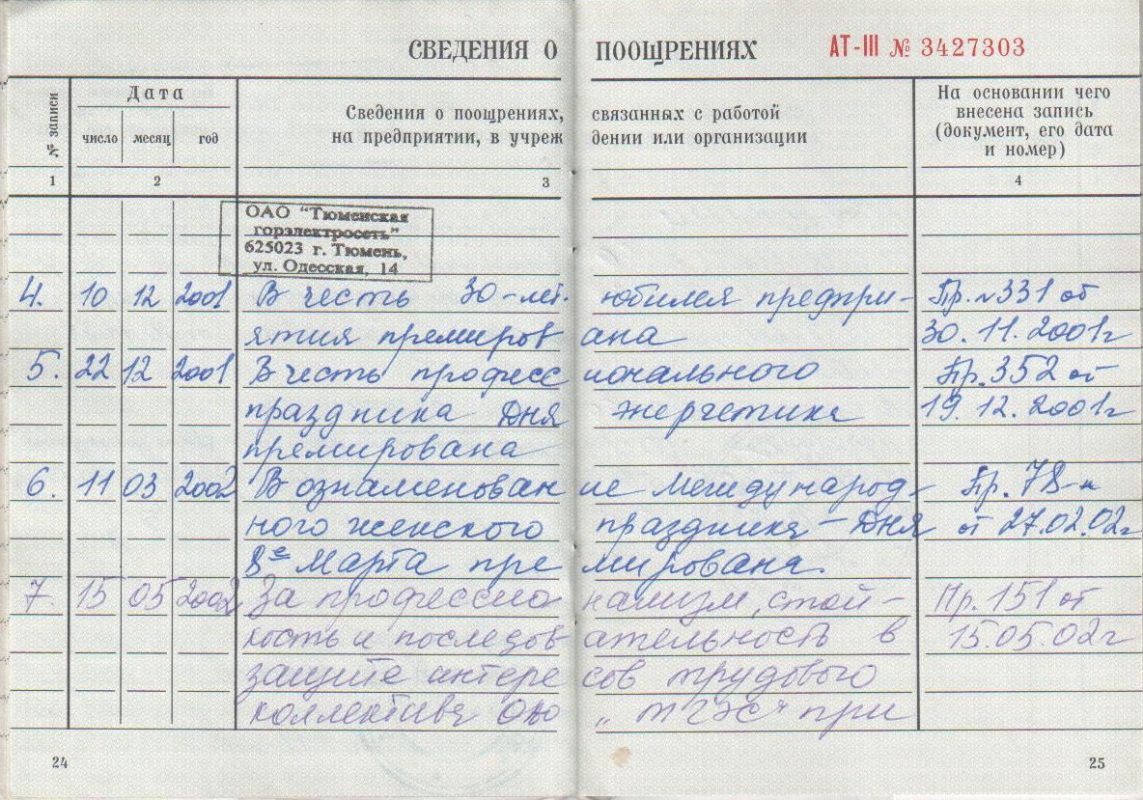 СВЕДЕНИЯ О ПООЩРЕНИЯХ АТ-III № 3427303
№ записи
Дата
число месяц год
Сведения о поощрениях, связанных с работой
на предприятии, в учреждении или организации
На основании чего
внесена запись
(документ, его дата
и номер)
1 2 3 4
ОАО "Тюменская
горэлектросеть"
625023 г. Тюмень,
ул. Одесская, 14
4. 10 12 2001 В честь 30-лет. юбилея предпри- Пр. №331 от
ятия премирована 30.11.2001г
5. 22 12 2001 В честь профессионального Пр.352 от
праздника Дня энергетика 19.12.2001г
премирована
6. 11 03 2002 В ознаменование Международ- Пр. 78-к
ного женского праздника – Дня от 27.02.02г
8е Марта премирована.
7. 15 05 2002 За профессионализм, стой- Пр. 151 от
кость и последовательность в 15.05.02г
защите интересов трудового
коллектива ОАО „ТГЭС" при
24 25